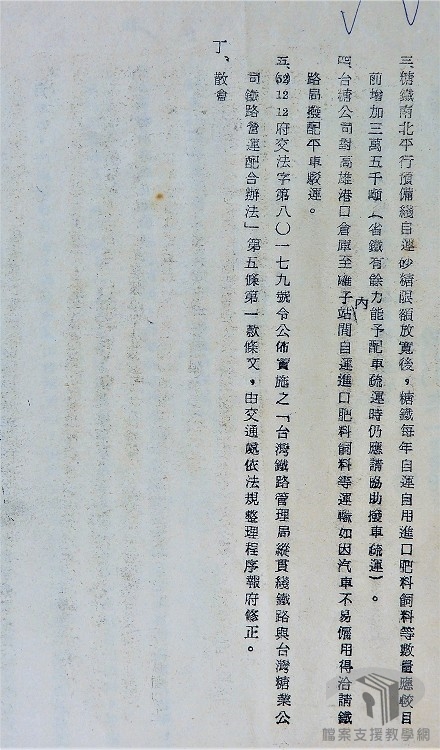 三、糖鐵南北平行預備綫自運砂糖限額放寬後，糖鐵每年自運自用進口肥料飼料等數量應較目
前增加三萬五千噸（省鐵有餘力能予配車疏運時仍應請協助撥車疏運）。
四、台糖公司對高雄港口倉庫至籬子內站間自運進口肥料飼料等運輸如因汽車不易僱用得洽請鐵
路局撥配平車駁運。
五、(52)12 12府交法字第八〇一七九號令公佈實施之「台灣鐵路管理局縱貫綫鐵路與台灣糖業公
司鐵路營運配合辦法」第五條第一款條文，由交通處依法規整理程序報府修正。
丁、散會
檔案支援教學網